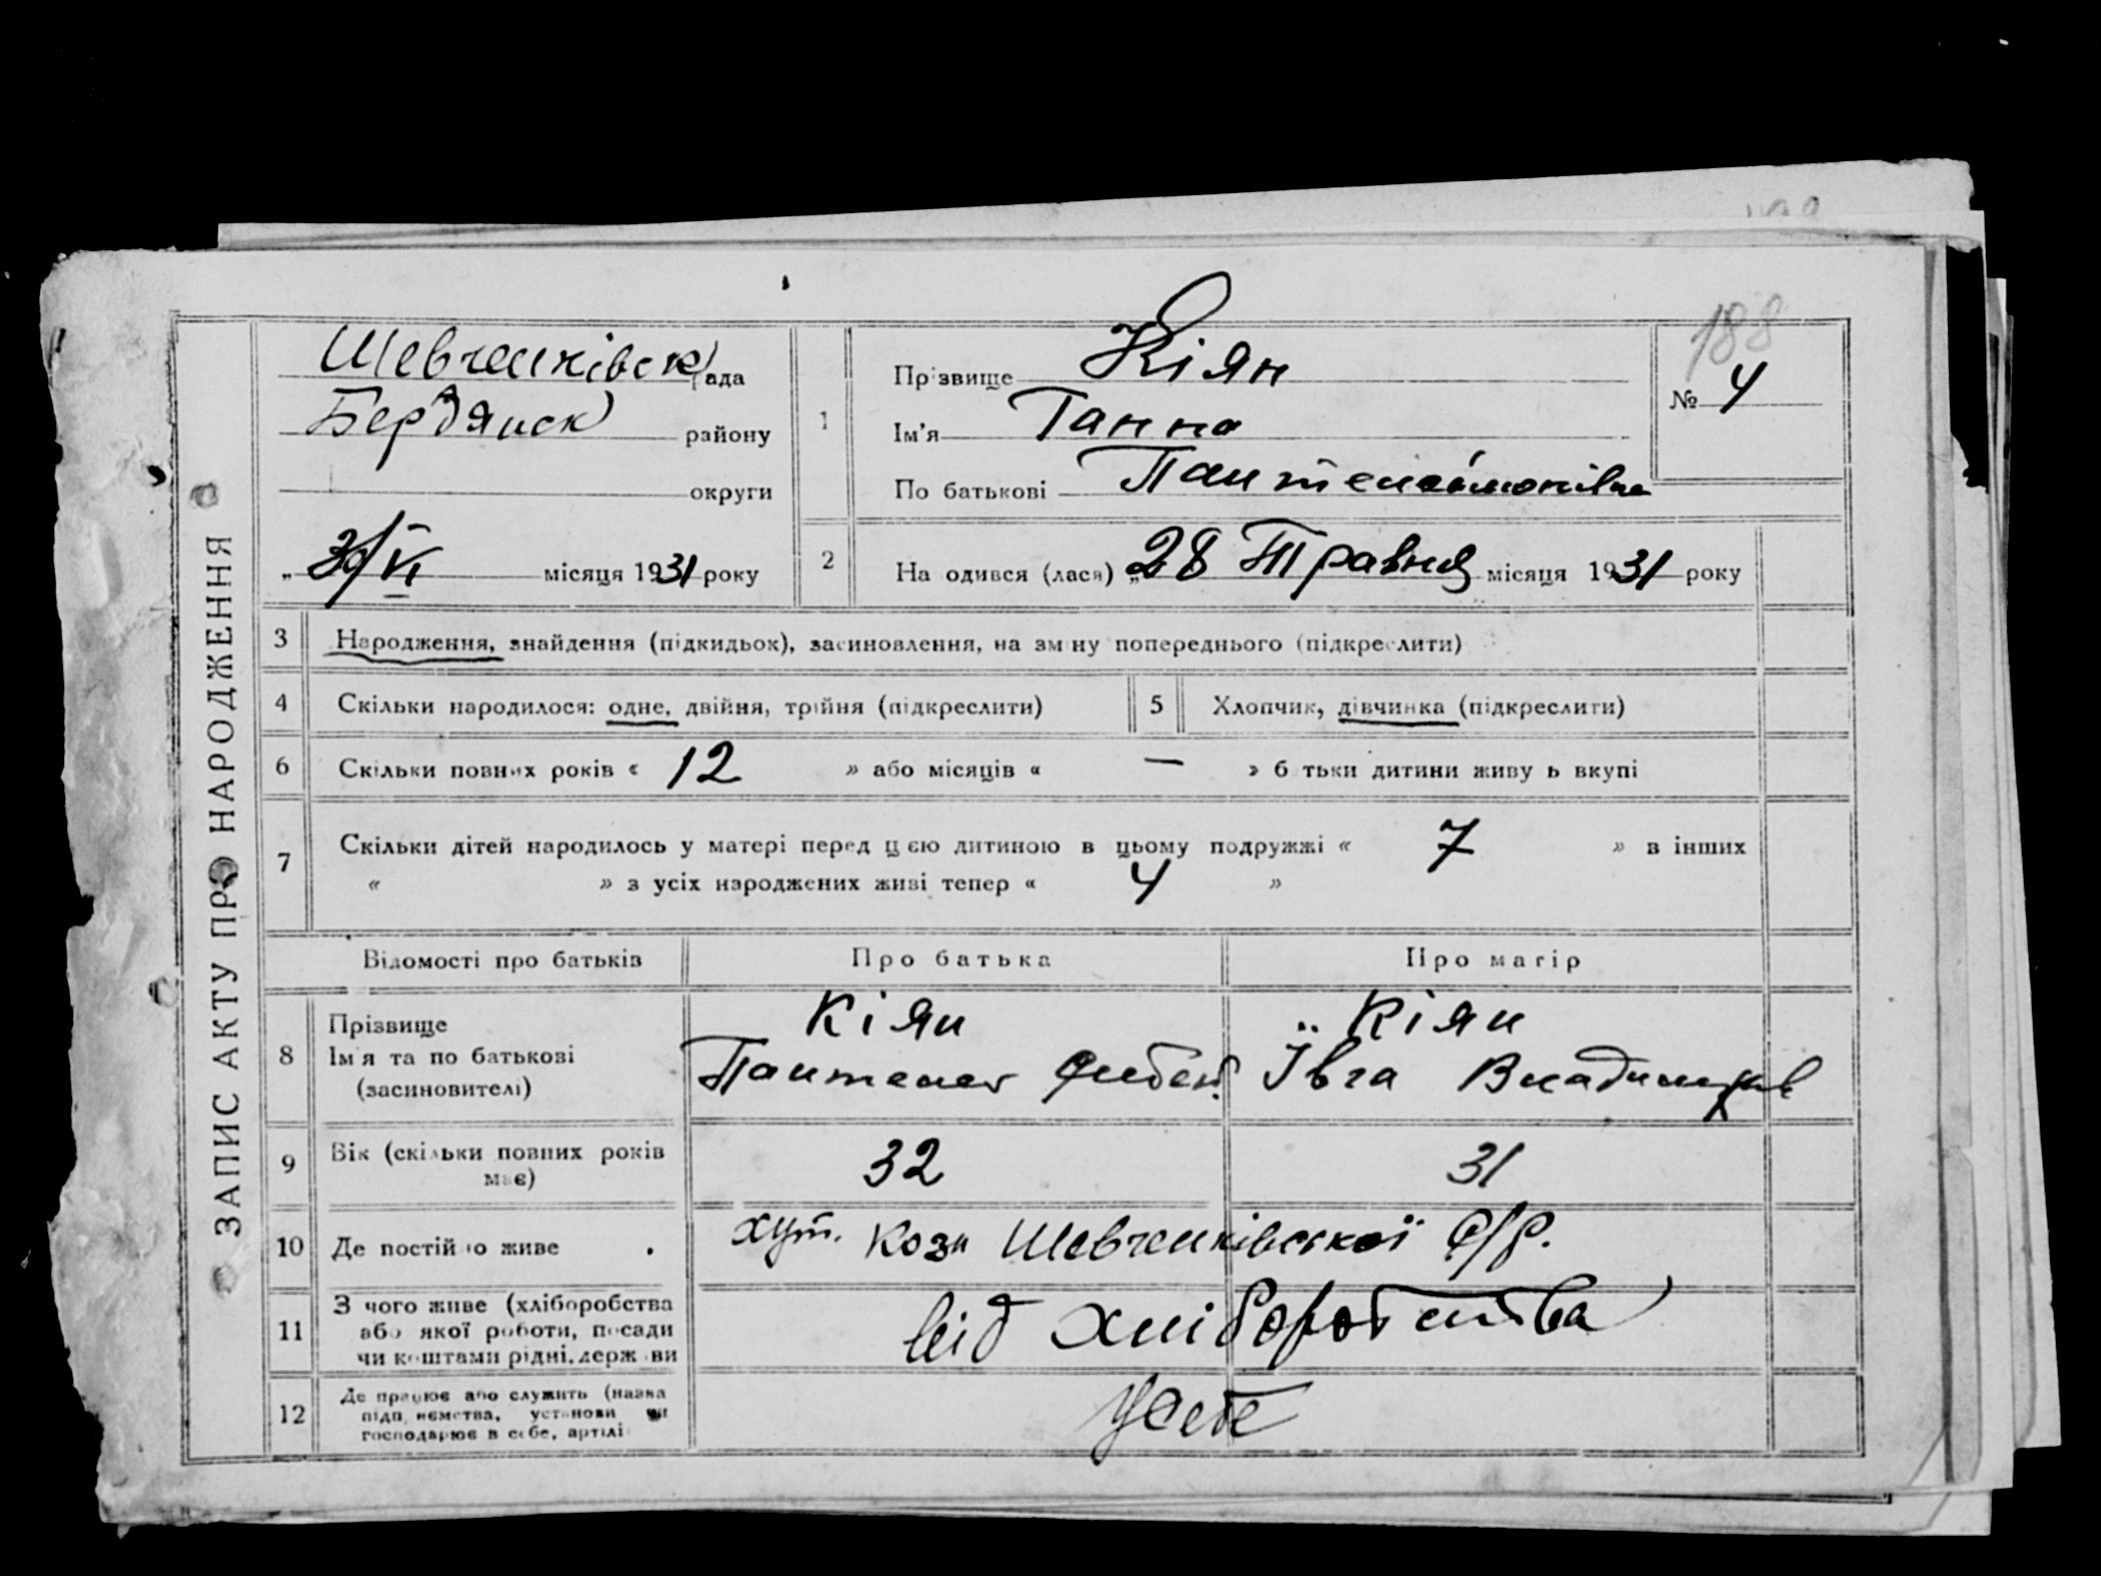 ЗАПИС АКТУ ПРО НАРОДЖЕННЯ
188
Шевченківськ рада
Бердянськ району
округи
„ 30/VI місяця 1931 року
1
Прізвище Кіян
Ім'я Ганна
По батькові Пантелеймонівна
№ 4
2
На одився (лася) „28 Травня місяця 1931 року
3 Народження, знайдення (підкидьок), засиновлення, на зміну попереднього (підкреслити)
4 Скільки народилося: одне, двійня, трійня (підкреслити)
5 Хлопчик, дівчинка (підкреслити)
6 Скільки повних років « 12 » або місяців « — » б тьки дитини живу ь вкупі
7 Скільки дітей народилось у матері перед цією дитиною в цьому подружжі « 7 » в інших
« » з усіх народжених живі тепер « 4 »
Відомості про батьків Про батька Про матір
8 Прізвище
Ім'я та по батькові
(засиновителі)
Кіян
Пантелей
Кіян
Ївга Владимиров
9 Вік (скільки повних років
має)
32 31
10 Де постійно живе
хут. Кози Шевченківської С/Р.
11 З чого живе (хліборобства
або якої роботи, посади
чи коштами рідні, держави
від хліборобства
12 Де працює або служить (назва
підприємства, установи чи
господарює в себе, артілі
У себе